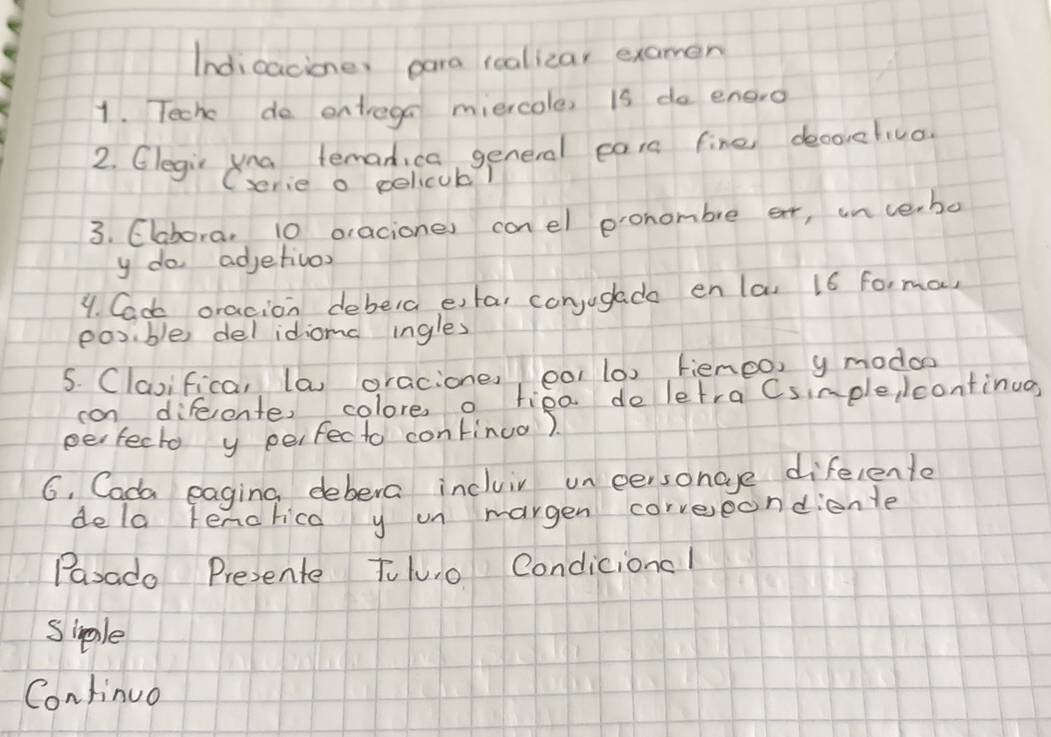 Indicaciones para realizar examen
1. Fecha de entrega miercoles 15 de enero
2. Elegir una tematica general para fines decorativos
(serie o pelicula)
3. Elaborar 10 oraciones con el pronombre un verbo
y dos adjetivos
4. Cada oración debera estar conjugada en las 16 formas
posibles del idioma ingles
5. Clasificar las oraciones por los tiempos y modos
con diferentes colores o tipo de letra (simple, continuo,
perfecto y perfecto continuo).
6. Cada pagina debera incluir un personaje diferente
de la tematica y un margen correspondiente
Pasado Presente Futuro Condicional
Simple
Continuo